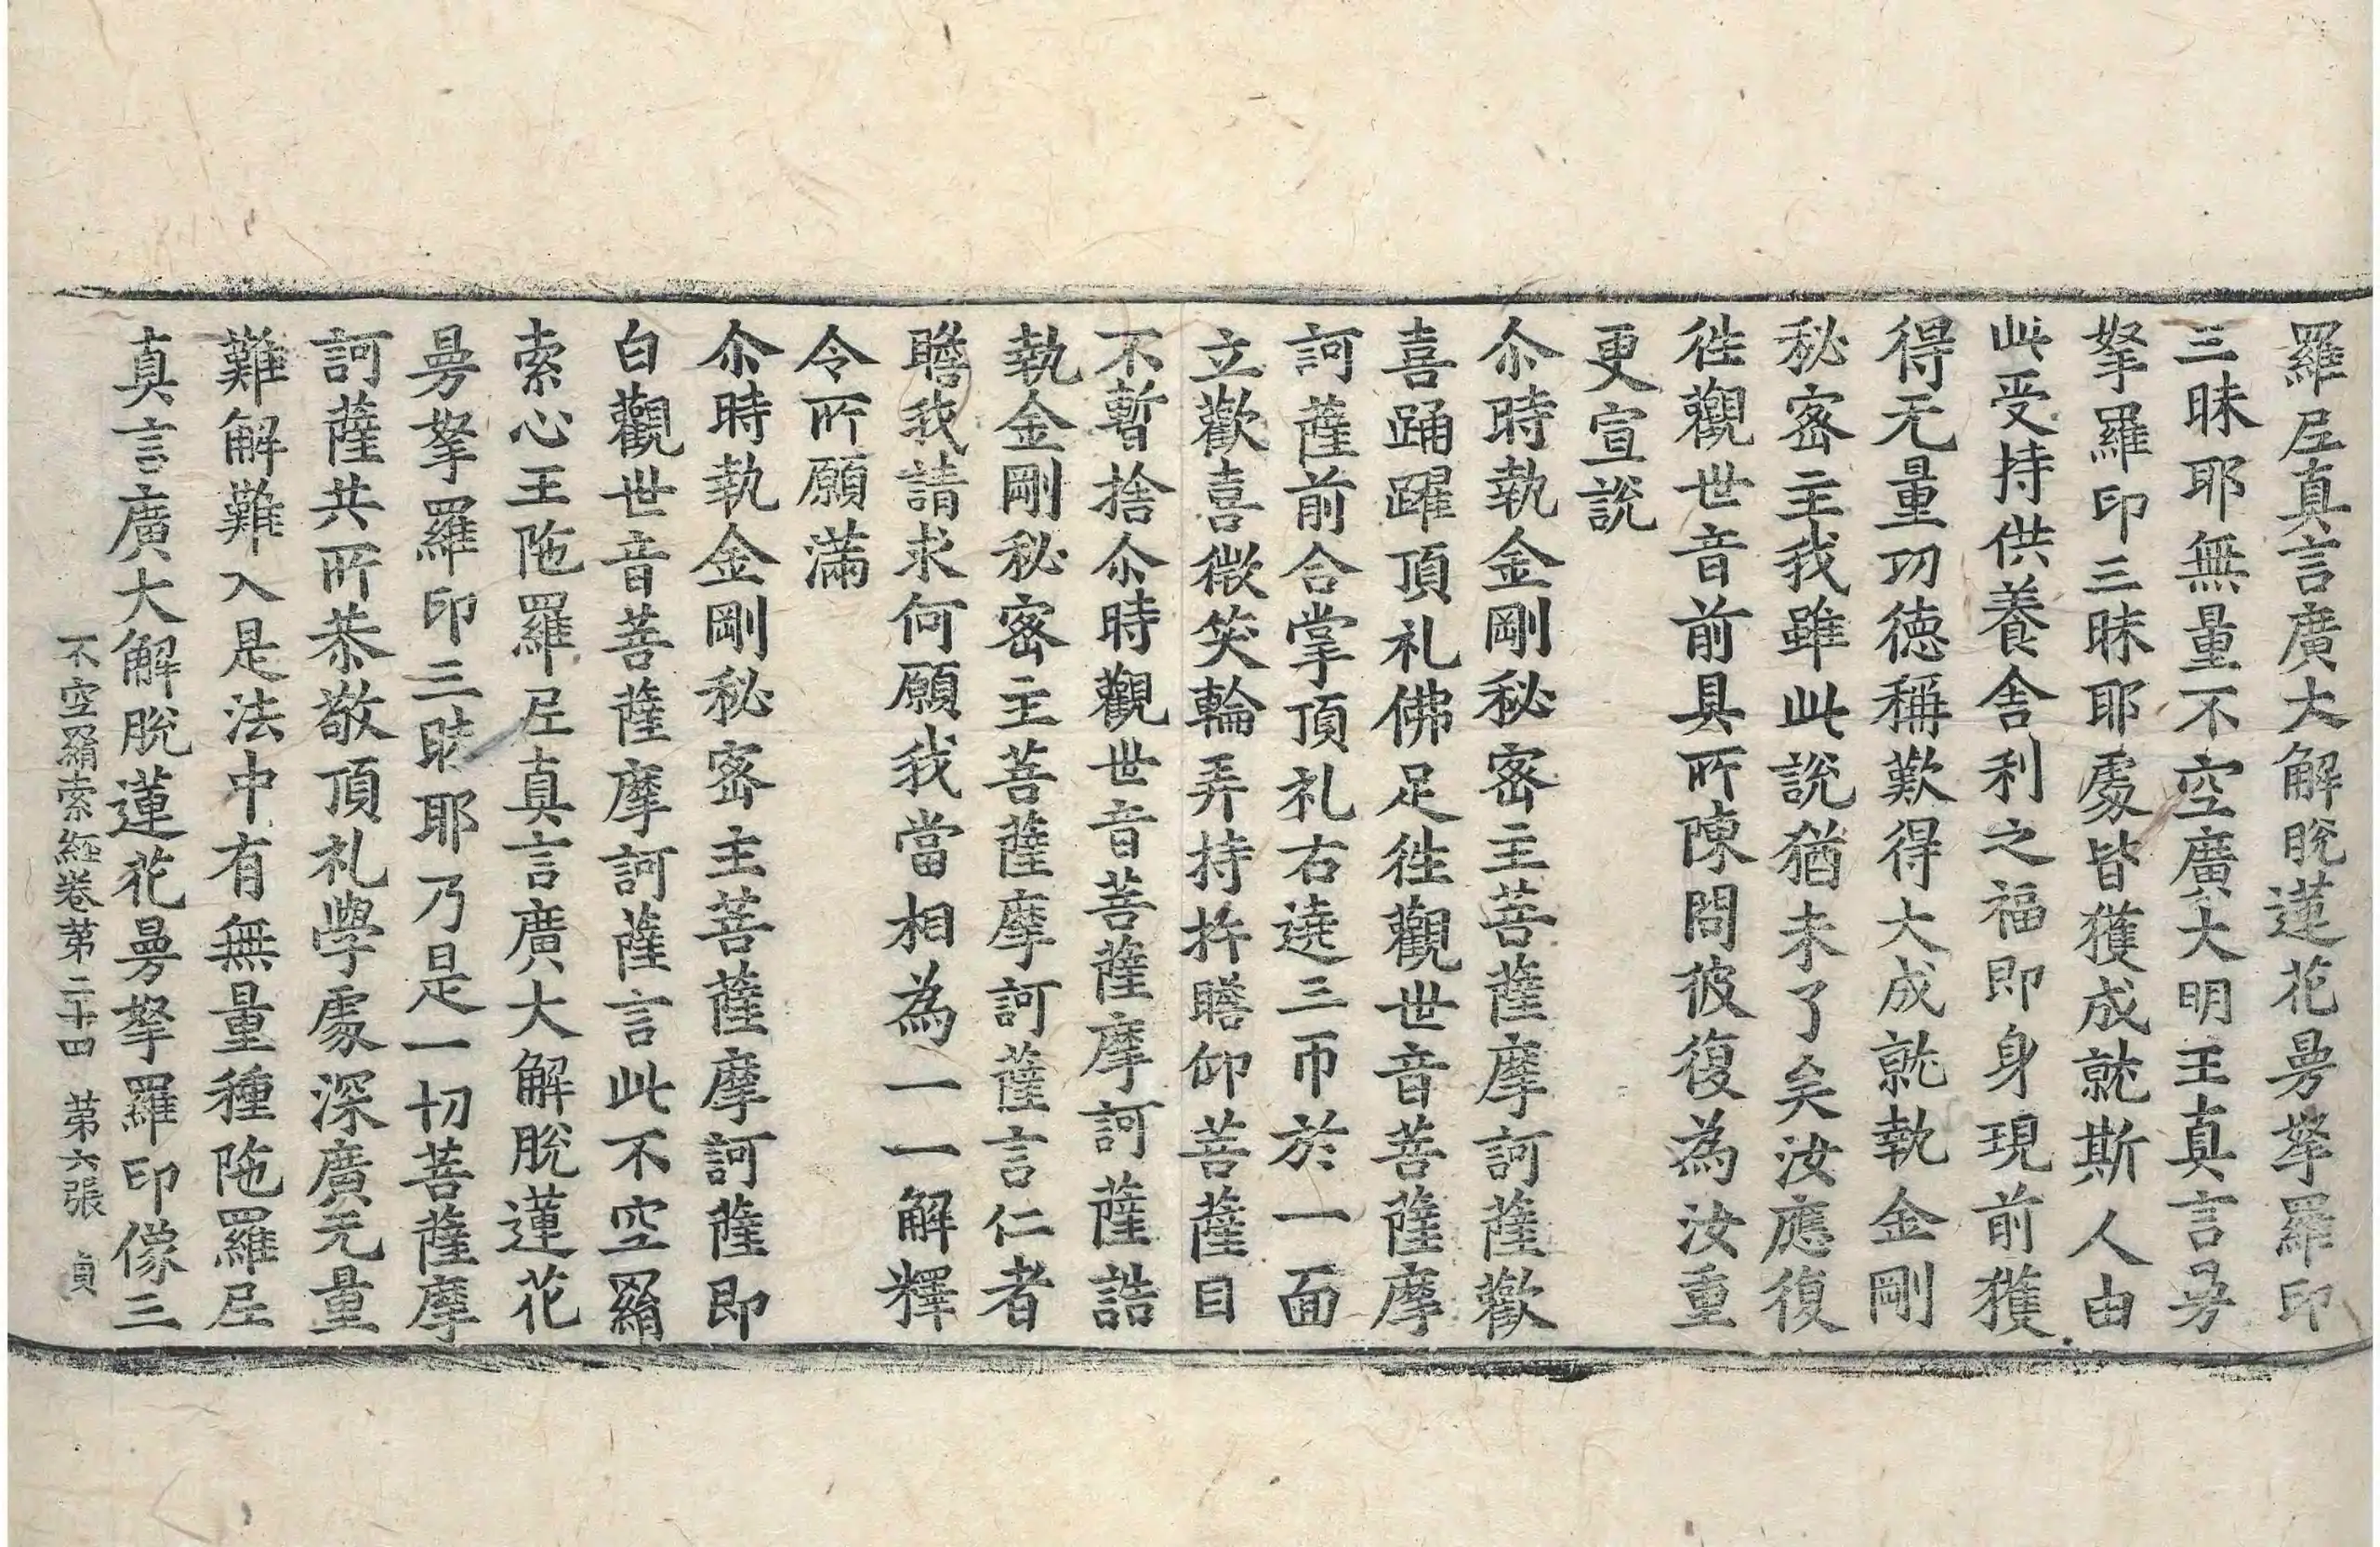 羅𡰱真言廣大解脫蓮花曼拏羅印
三昧耶無量不空廣大明王真言曼
拏羅印三昧耶處皆獲成就斯人由
此受持供養舎利之福即身現前獲
得无量功德稱歎得大成就執金剛
秘密主我雖此說猶未了矣汝應復
徃觀世音前具所陳問彼復為汝重
更宣說
尒時執金剛秘密主菩薩摩訶薩歡
喜踊躍頂礼佛足徃觀世音菩薩摩
訶薩前合掌頂礼右遶三帀於一面
立歡喜微笑輪弄持杵瞻仰菩薩目
不暫捨尒時觀世音菩薩摩訶薩誥
執金剛秘密主菩薩摩訶薩言仁者
瞻我請求何願我當相為一一解釋
令所願滿
尒時執金剛秘密主菩薩摩訶薩即
白觀世音菩薩摩訶薩言此不空羂
索心王陁羅𡰱真言廣大解脫蓮花
曼拏羅印三昧耶乃是一切菩薩摩
訶薩共所恭敬頂礼學處深廣无量
難解難入是法中有無量種陁羅𡰱
真言廣大解脫蓮花曼拏羅印像三
不空羂索經卷第二十四 第六張 貞